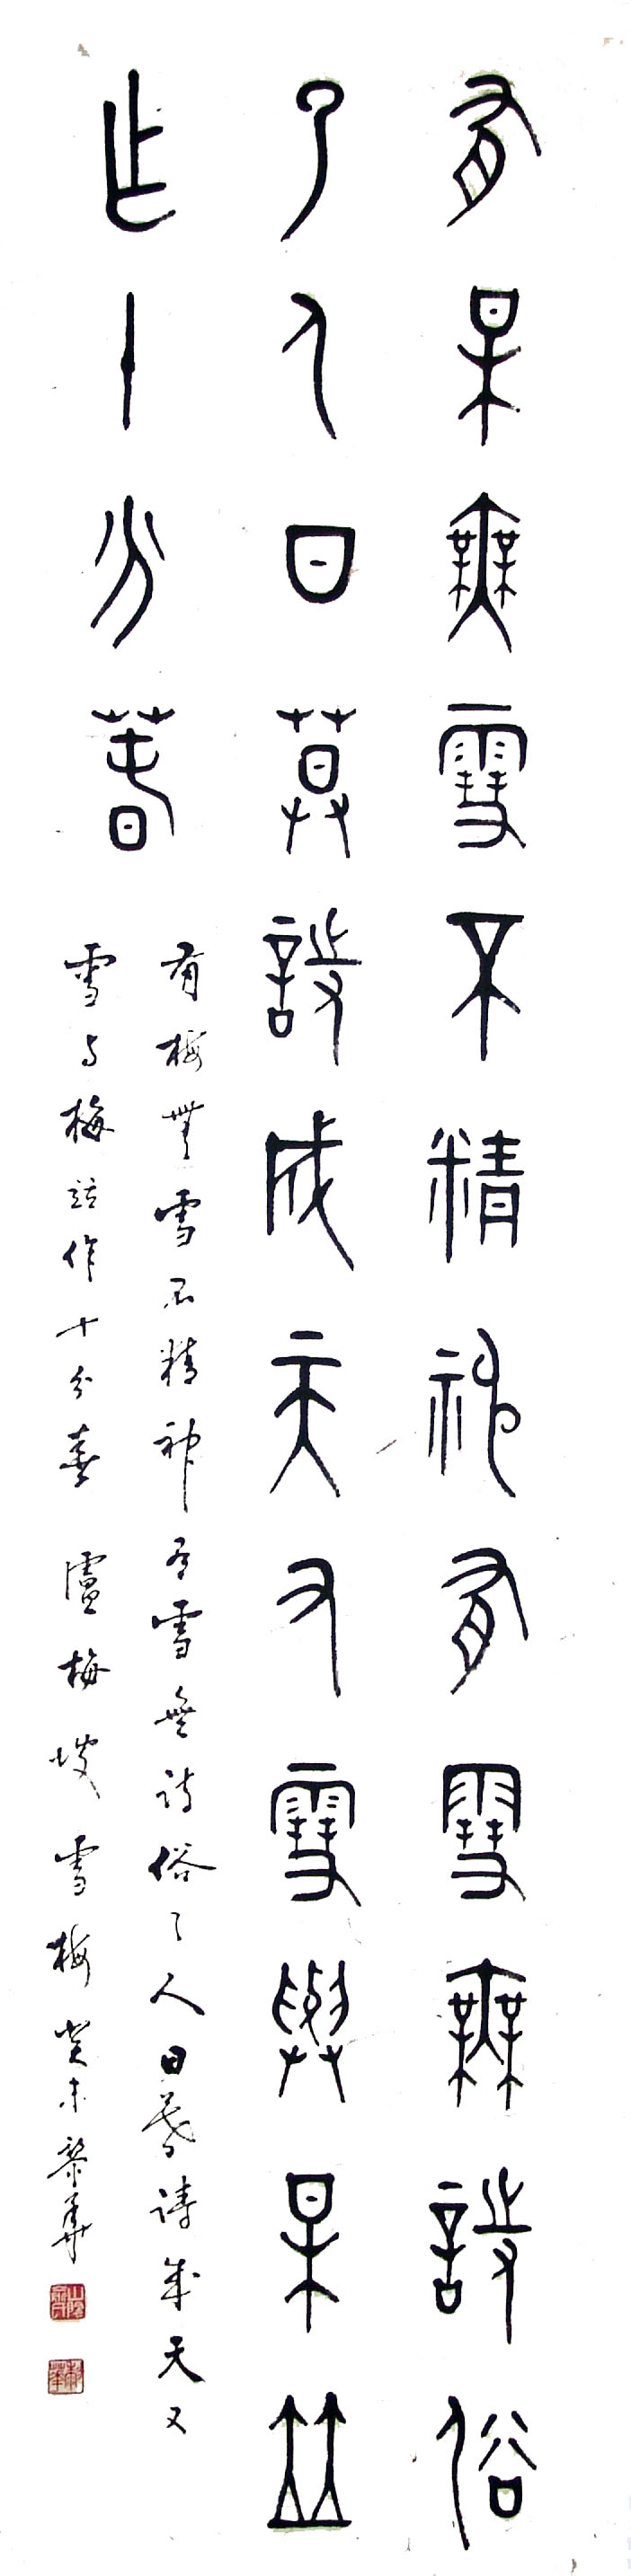 有梅無雪不精神有雪無詩俗
了人日莫詩成天又雪與梅竝
乍十分春
有梅無雪不精神有雪無詩俗了人日暮詩成天又
雪与梅竝作十分春 盧梅坡 雪梅 癸未